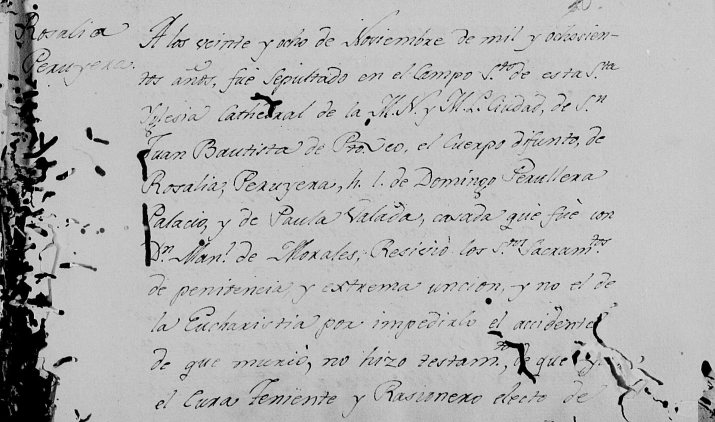 Rosalia
Peruyera.
A los veinte y ocho de Noviembre de mil y ochosien-
tos años, fue sepultado en el Campo S.to de esta S.ta
Yglesia Cathedral de la M. N. y M. L. Ciudad, de S.n
Juan Bautista de Pto. Rco, el Cuerpo difunto, de
Rosalia Peruyera, h. l. de Domingo Perullera
Palacio, y de Paula Valada, casada que fue con
Dn Man.l de Morales; Resicio los S.tos Sacram.tos
de penitencia, y extrema uncion, y no el de
la Eucharistia por impedirlo el accidente
de que murio, no hizo testam.to, de que
el Cura Teniente y Rasionero electo de